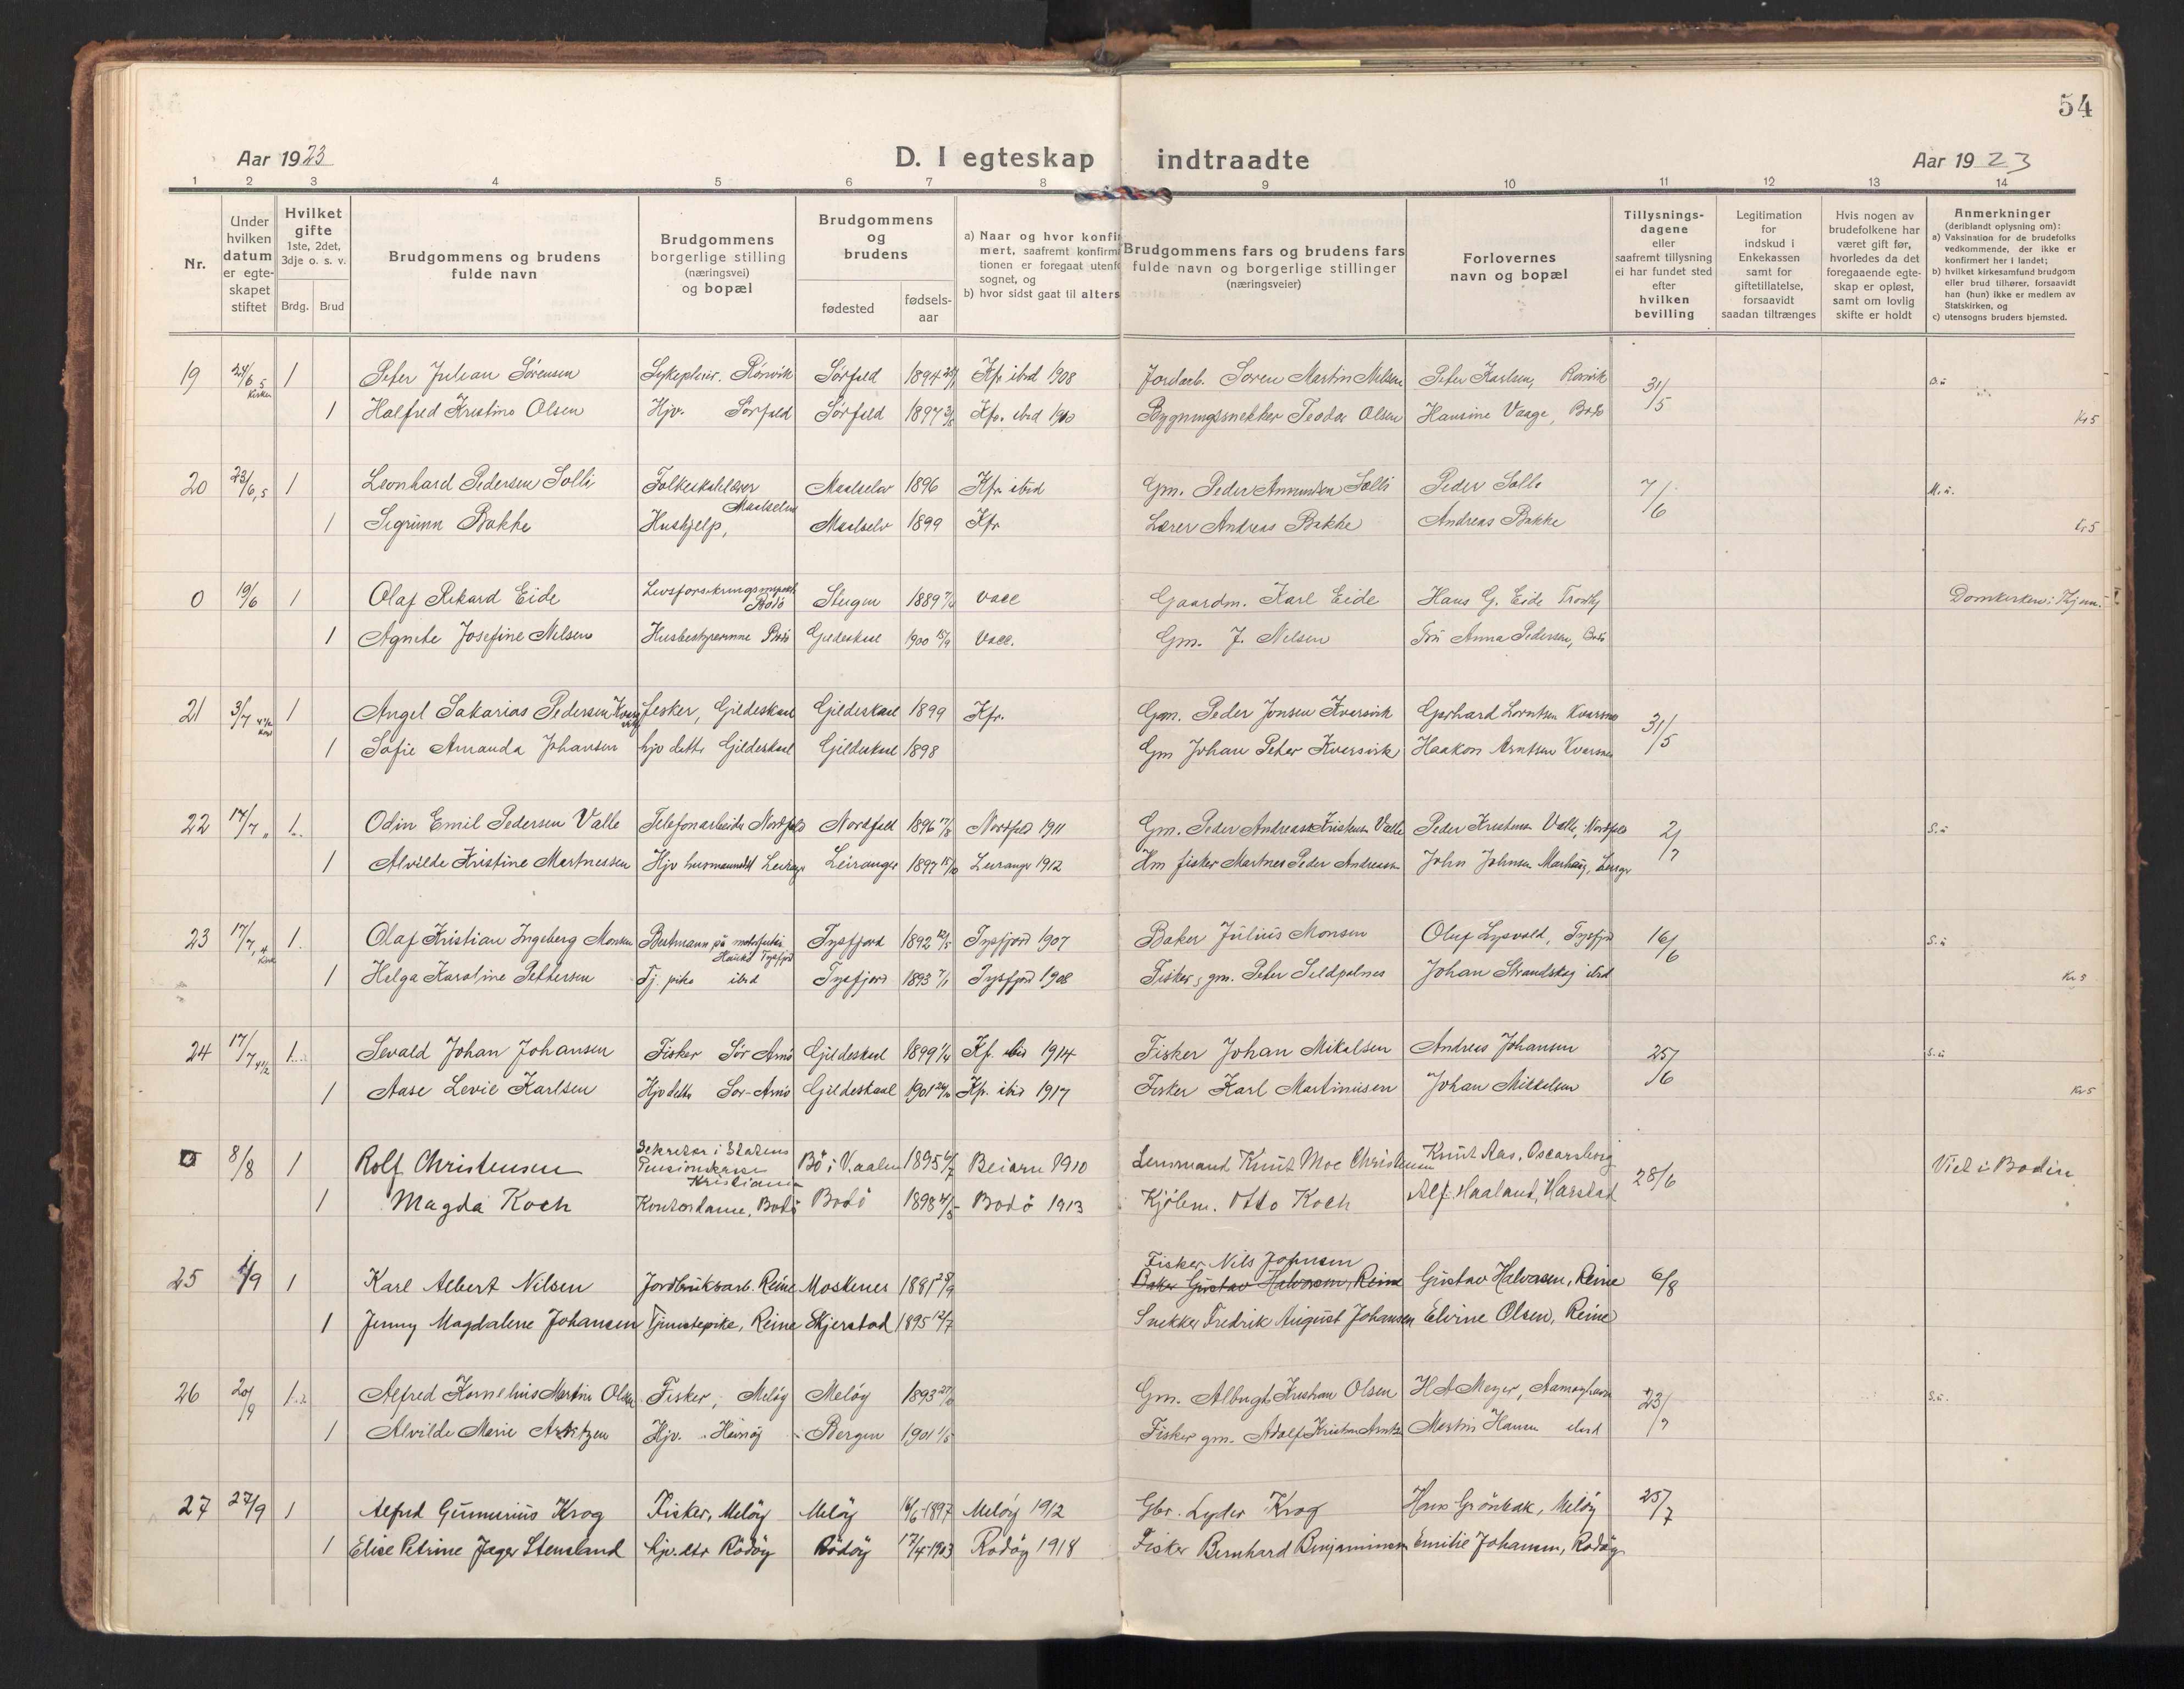 54
Aar 1923 D. I egteskap indtraadte Aar 1923
1 2 3 4 5 6 7 8 9 10 11 12 13 14
Nr.
Under hvilken datum er egte-skapet stiftet
Hvilket gifte 1ste, 2det, 3dje o. s. v.
Brdg. Brud
Brudgommens og brudens fulde navn
Brudgommens borgerlige stilling (næringsvei) og bopæl
Brudgommens og brudens
fødested fødsels-aar
a) Naar og hvor konfir
mert, saafremt konfirma
tionen er foregaat utenfo
sognet, og
b) hvor sidst gaat til alters
Brudgommens fars og brudens fars
fulde navn og borgerlige stillinger
(næringsveier)
Forlovernes
navn og bopæl
Tillysnings-
dagene
eller
saafremt tillysning
ei har fundet sted
efter
hvilken
bevilling
Legitimation
for
indskud i
Enkekassen
samt for
giftetillatelse,
forsaavidt
saadan tiltrænges
Hvis nogen av
brudefolkene har
været gift før,
hvorledes da det
foregaaende egte-
skap er opløst,
samt om lovlig
skifte er holdt
Anmerkninger
(deriblandt oplysning om):
a) Vaksination for de brudefolks
vedkommende, der ikke er
konfirmert her i landet;
b) hvilket kirkesamfund brudgom
eller brud tilhører, forsaavidt
han (hun) ikke er medlem av
Statskirken, og
c) utensogns bruders hjemsted.
19 24/6 5 1 Peter Julian Sørensen Sørfold 1894 Kfr ibid 1908 Jordarb. Søren Martin Nilsen Peter Karlsen, Rørvik 31/5
1 Halfred Kristine Olsen Hjv. Sørfold Sørfold 1897 Kfr. ibid Bygningssnekker Teodor Olsen Hansine Vaage, Bodø Kr 5
20 23/6, 5 1 Leonhard Pedersen Solli Folkeskolelærer Maalselv Maalselv 1896 Kfr ibid Gm. Peder Solli Peder Solli 7/6
1 Sigrunn Bakke Hushjelp, Maalselv 1899 Kfr Lærer Andreas Bakke Andreas Bakke Kr 5
0 19/6 1 Olaf Rikard Eide Bodö Steigen 1889 vacc Gaardm. Karl Eide Hans G. Eide Domkirken i
1 Agnete Josefine Nilsen Husbestyrerinne Bodö Gildeskaal 1900 15/9 vacc. Gm. J. Nilsen Frü Anna Pedersen, Bodö
21 3/7 1 Angel Sakarias Pedersen fisker, Gildeskaal Gildeskaal 1899 Kfr. Gm. Peder Jonsen Kversvik Gerhard Lorntsen 31/5
1 Sofie Amanda Johansen hjv dattr Gildeskaal Gildeskaal 1898 Gm Johan Peter Kversvik Haakon Arntsen
22 17/7 1 Odin Emil Pedersen Valle Telefonarbeider Nordfold Nordfold 1896 Nordfold 1911 Gm. Peder Andreas Kristensen Valle Peder Kristensen Valle, Nordfold 2/7 S.ü
1 Alvilde Kristine Martnessen Leiranger 1897 15/10 Leiranger 1912 Hm fisker Martnes Peder Andreassen John Johnsen
23 17/7, 4 1. Olaf Kristian Ingeberg Monsen Bestmann på Tysfjord Tysfjord 1892 Tysfjord 1907 Baker Julius Monsen Oluf Lysvold, Tysfjd 16/6 S.ü
1 Helga Karoline Pettersen Tj. pike ibid Tysfjord 1893 7/1 Tysfjord 1908 Fisker, gm. Peter Johan Strandskog ibid Kr 5
24 17/7 4 1/2 1 Sevald Johan Johansen Fisker Sör Arnö Gildeskaal 1899 Kf. ibid 1914 Fisker Johan Mikalsen Andreas Johansen 25/6 S.ü
1 Aase Levie Karlsen Hjv dattr Sör-Arnö Gildeskaal 1901 Kfr. ibid 1917 Fisker Karl Martinüsen Johan Mikkelsen Kr 5
8/8 1 Rolf Christensen Sekretær i Statens Pensionskasse Kristiania Bö i V.aalen 1895 Beiarn 1910 Lensmand Knüt Moe Christensen Knüt Aas, Oscarsborg 28/6 Viet i Bodin
1 Magda Koch Kontordame, Bodö Bodö 1898 Bodö 1913 Kjöbm. Otto Koch Alf Haaland, Harstad
25 1/9 1 Karl Albert Nilsen Jordbruksarb. Reine Moskenes 1881 28/9 Fisker Nils Johnsen Baker Güstav Halvorsen, Reine Güstav Halvorsen, Reine 6/8
1 Jenny Magdalene Johansen Tjenestepike, Reine Skjerstad 1895 12/7 Snekker Fredrik Aügüst Johansen Elvine Olsen, Reine
26 20/9 1 Alfred Kornelius Martin Olsen Fisker, Melöy Melöy 1893 Gm. Albrigt Kristian Olsen H A Meyer, 23/7 S.ü.
1 Alvilde Marie Arntzen Hjv. Bergen 1901 1/5 Fisker gm. Adolf Kristian Arntz Martin Hansen ibid
27 27/9 1 Alfred Günnerius Krog Fisker, Melöy Melöy 16/6-1897 Melöy 1912 Gbr. Lyder Krog Hans Grönbæk, Melöy 25/7
1 Elise Petrine Jæger Stensland hjv. dtr Rödöy Rödöy 17/4-1903 Rödöy 1918 Fisker Bernhard Benjaminsen Emilie Johansen, Rödöy